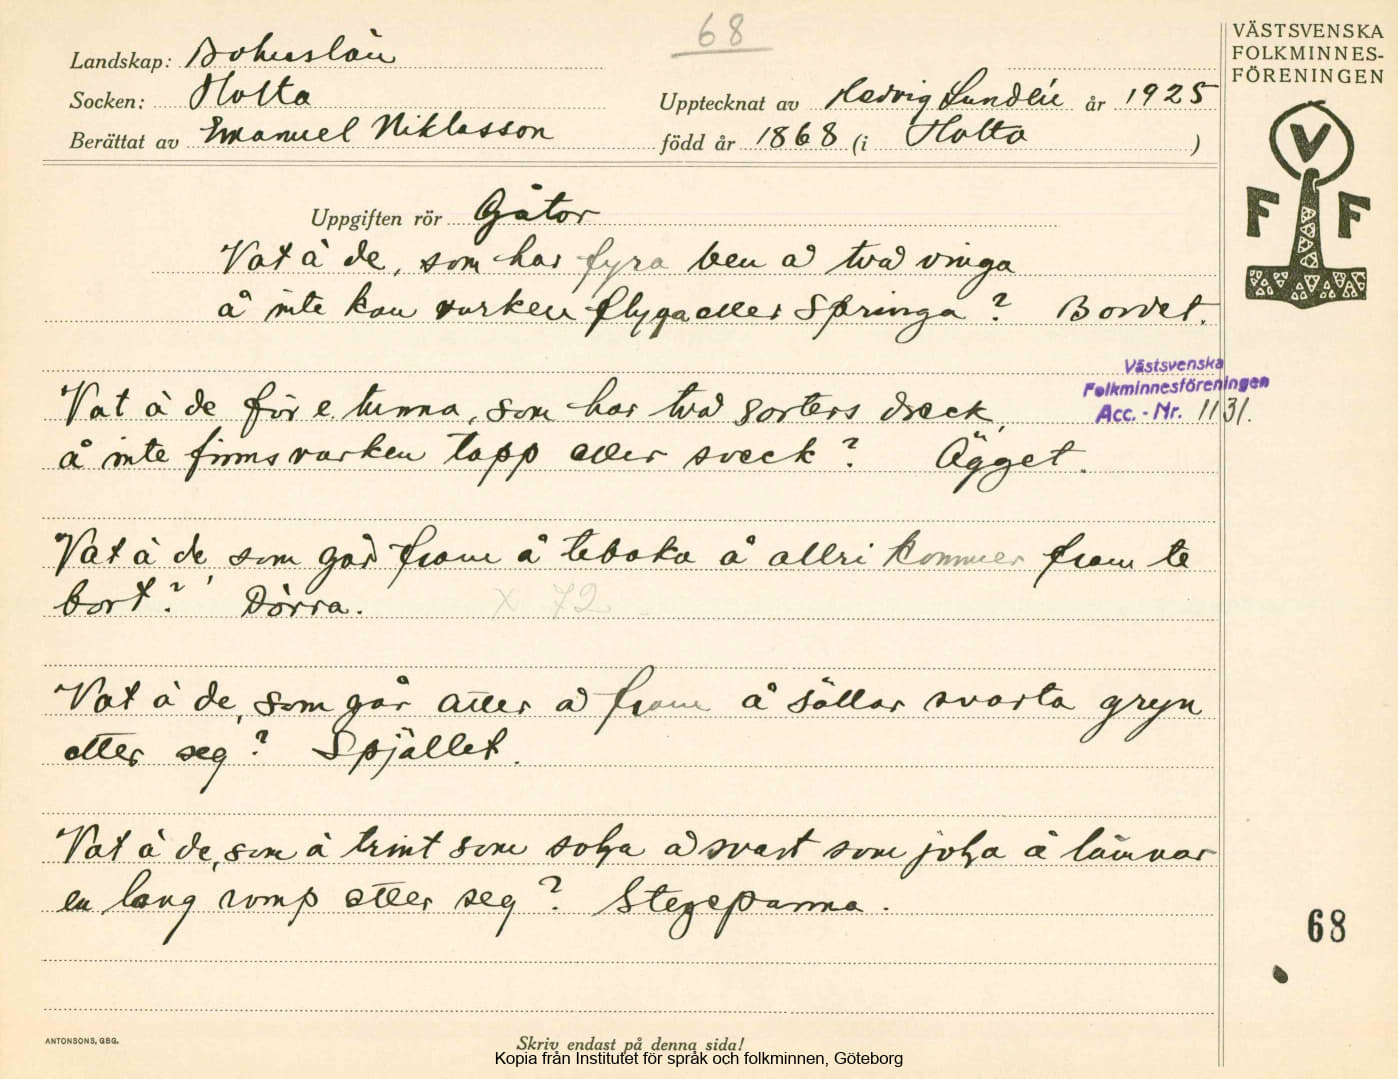 68
Landskap: Bohuslän
Socken: Holta
Upptecknat av Hedvig Lundén år 1925
Berättat av Emanuel Niklasson född år 1868 (i Holta )
VÄSTSVENSKA
FOLKMINNES-
FÖRENINGEN
V
F F
Uppgiften rör Gåtor
Vat ä de, som har fyra ben å två vinga
å inte kan varken flyga eller springa? Bordet.
Västsvenska
Folkminnesföreningen
Acc. - Nr. 1131.
Vat ä de för e tunna, som har två sorters dreck,
å inte finns varken tapp eller sveck? Ägget.
Vat ä de som går fram å tebaka å allri kommer fram te
bort? Dörra.
x 72
Vat ä de, som går atter å fram å sållar svarta gryn
atter seg? Spjället.
Vat ä de, som ä trint som som å svart som å lämnar
en lang romp atter seg? Stegepanna.
68
ANTONSONS, GBG.
Skriv endast på denna sida!
Kopia från Institutet för språk och folkminnen, Göteborg